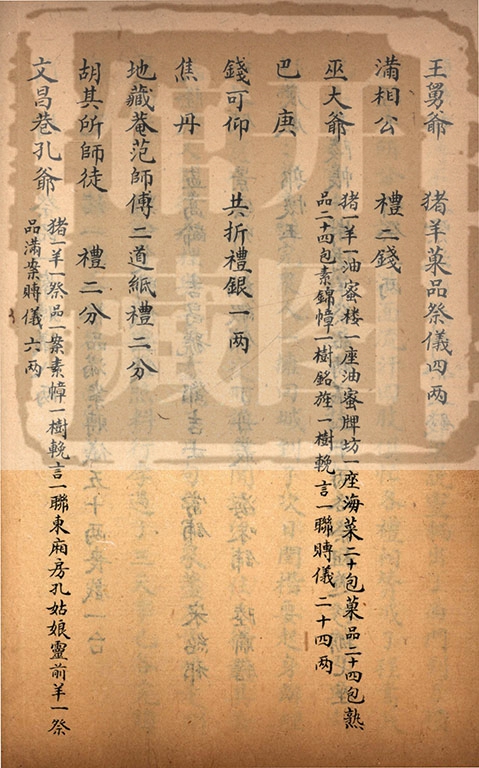 王舅爺　豬羊菓品祭儀四两
滿相公　禮二錢
巫大爺　豬一羊一油蜜樓一座油蜜牌坊一座海菜二十包菓品二十四包熟
品二十四包素錦幛一樹銘旌一樹輓言一聯賻儀二十四两
巴庚
錢可仰　共折禮銀一两
焦丹
地藏菴范師傅二道紙禮二分
胡其所師徒　禮二分
文昌巷孔爺　猪一羊一祭品一案素幛一樹輓言一聯東廂房孔姑娘靈前羊一祭
品滿案賻儀六两